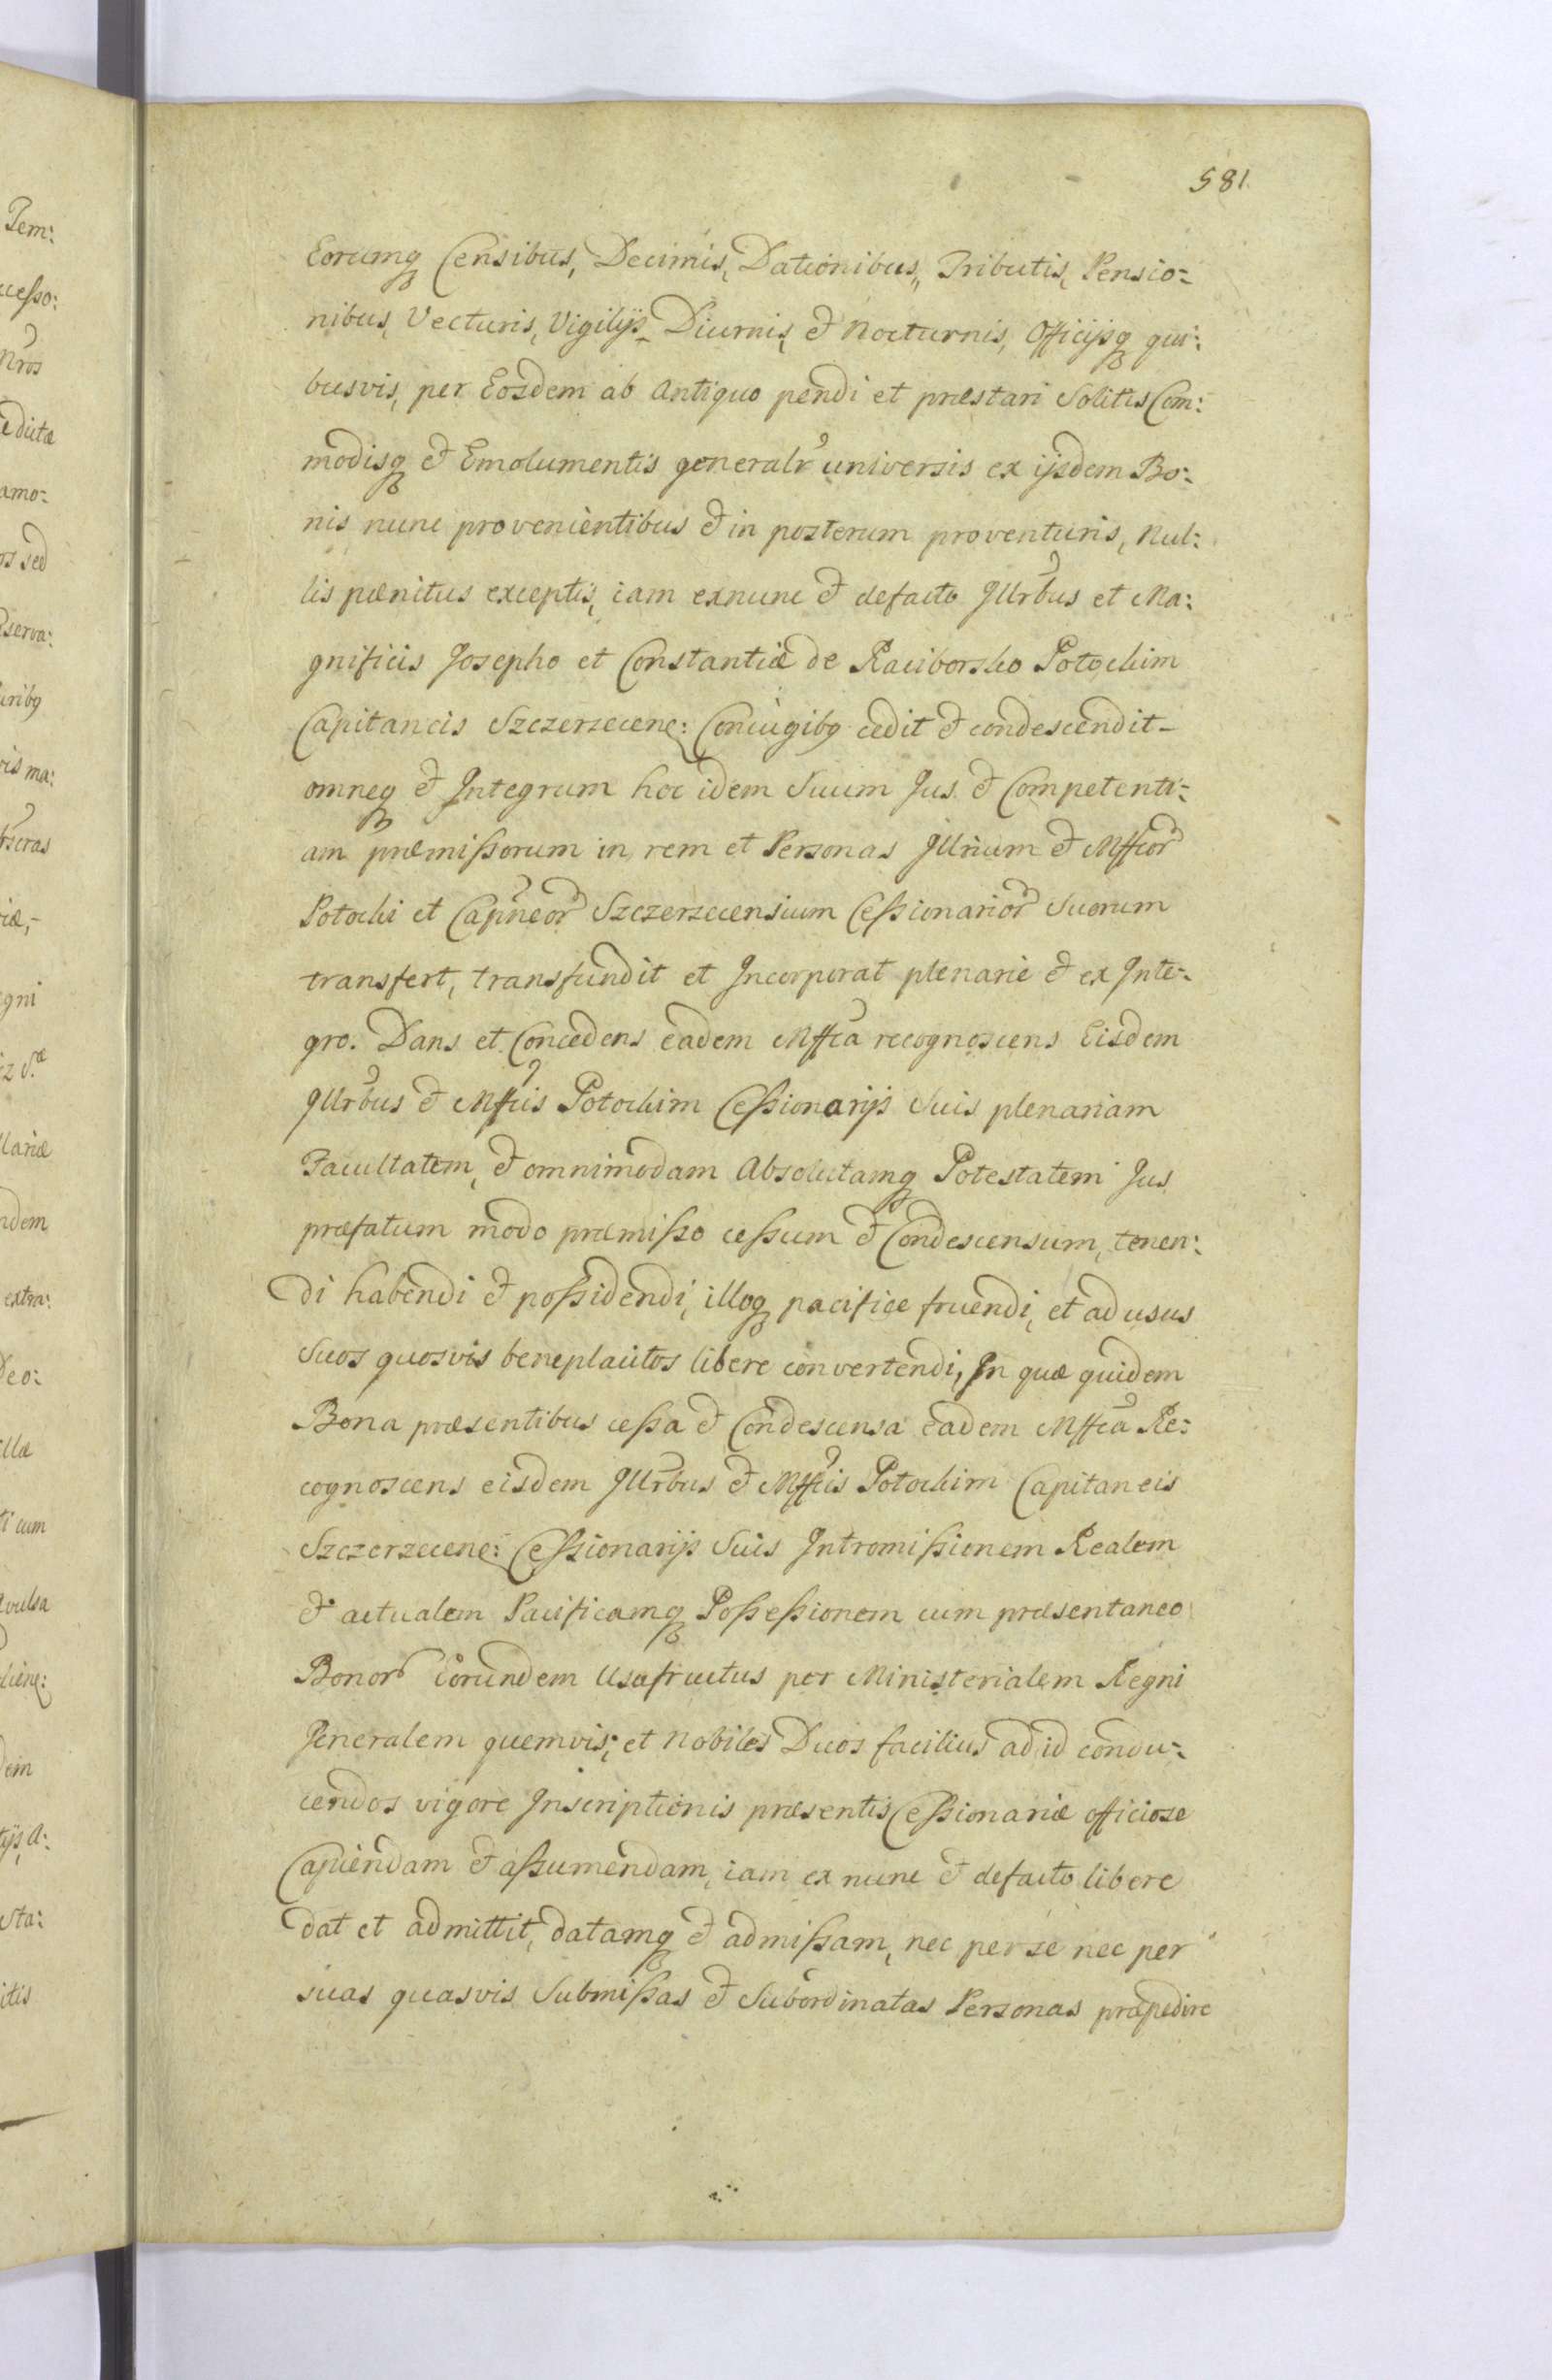 581
Eorumq Censibus, Decimis, Dationibus, Tributis, Pensio:
nibus, Vecturis, Vigilijs Diurnis, et Nocturnis, Officijsq qui:
busvis, per Eosdem ab Antiquo pendi et præstari Solitis Com:
modisq et Emolumentis generalr universis ex ijsdem Bo:
nis nunc provenientibus et in posterum proventuris, Nul:
lis pænitus exceptis, iam exnunc et defacto Jllrbus et Ma:
gnificis Josepho et Constantiæ de Raciborsko Potockim
Capitaneis Szczerzecene: Coniugibq cedit et condescendit
omneq et Integrum hoc idem Suum Jus et Competenti:
am præmissorum in rem et Personas Jllrium et Mfficor
Potocki et Capneor Szczerzecensium Cessionarior Suorum
transfert, transfundit et Incorporat plenarie et ex Inte:
gro. Dans et Concedens eadem Mffca recognoscens Eisdem
Jllrbus et Mffcis Potockim Cessionarijs Suis plenariam
Facultatem, et omnimodam Absolutamq Potestatem Jus
præfatum modo præmisso cessum et Condescensum, tenen:
di habendi et possidendi, illoq pacifice fruendi, et ad usus
Suos quosvis beneplacitos libere convertendi, In quæ quidem
Bona præsentibus cessa et Condescensa eadem Mffca Re:
cognoscens eisdem Jllrbus et Mffcis Potockim Capitaneis
Szczerzecene: Cessionarijs Suis Intromissionem Realem
et actualem Pacificamq Possessionem cum præsentaneo
Bonor Eorundem Usufructus per Ministerialem Regni
Generalem quemvis, et Nobiles Duos facilius ad id condu:
cendos vigore Inscriptionis præsentis Cessionariæ officiose
Capiendam et assumendam, iam ex nunc et defacto libere
dat et admittit, datamq et admissam, nec per se nec per
suas quasvis Submissas et Subordinatas Personas præpedire